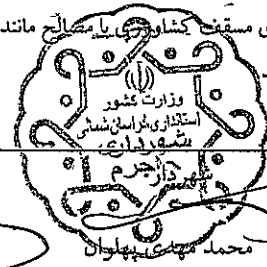 مسقف کشاورزی با مصالح مانند
وزارت کشور
استانداری خراسان شمالی
شهرداری
شهردار جرم
محمد مهدی پهلوان